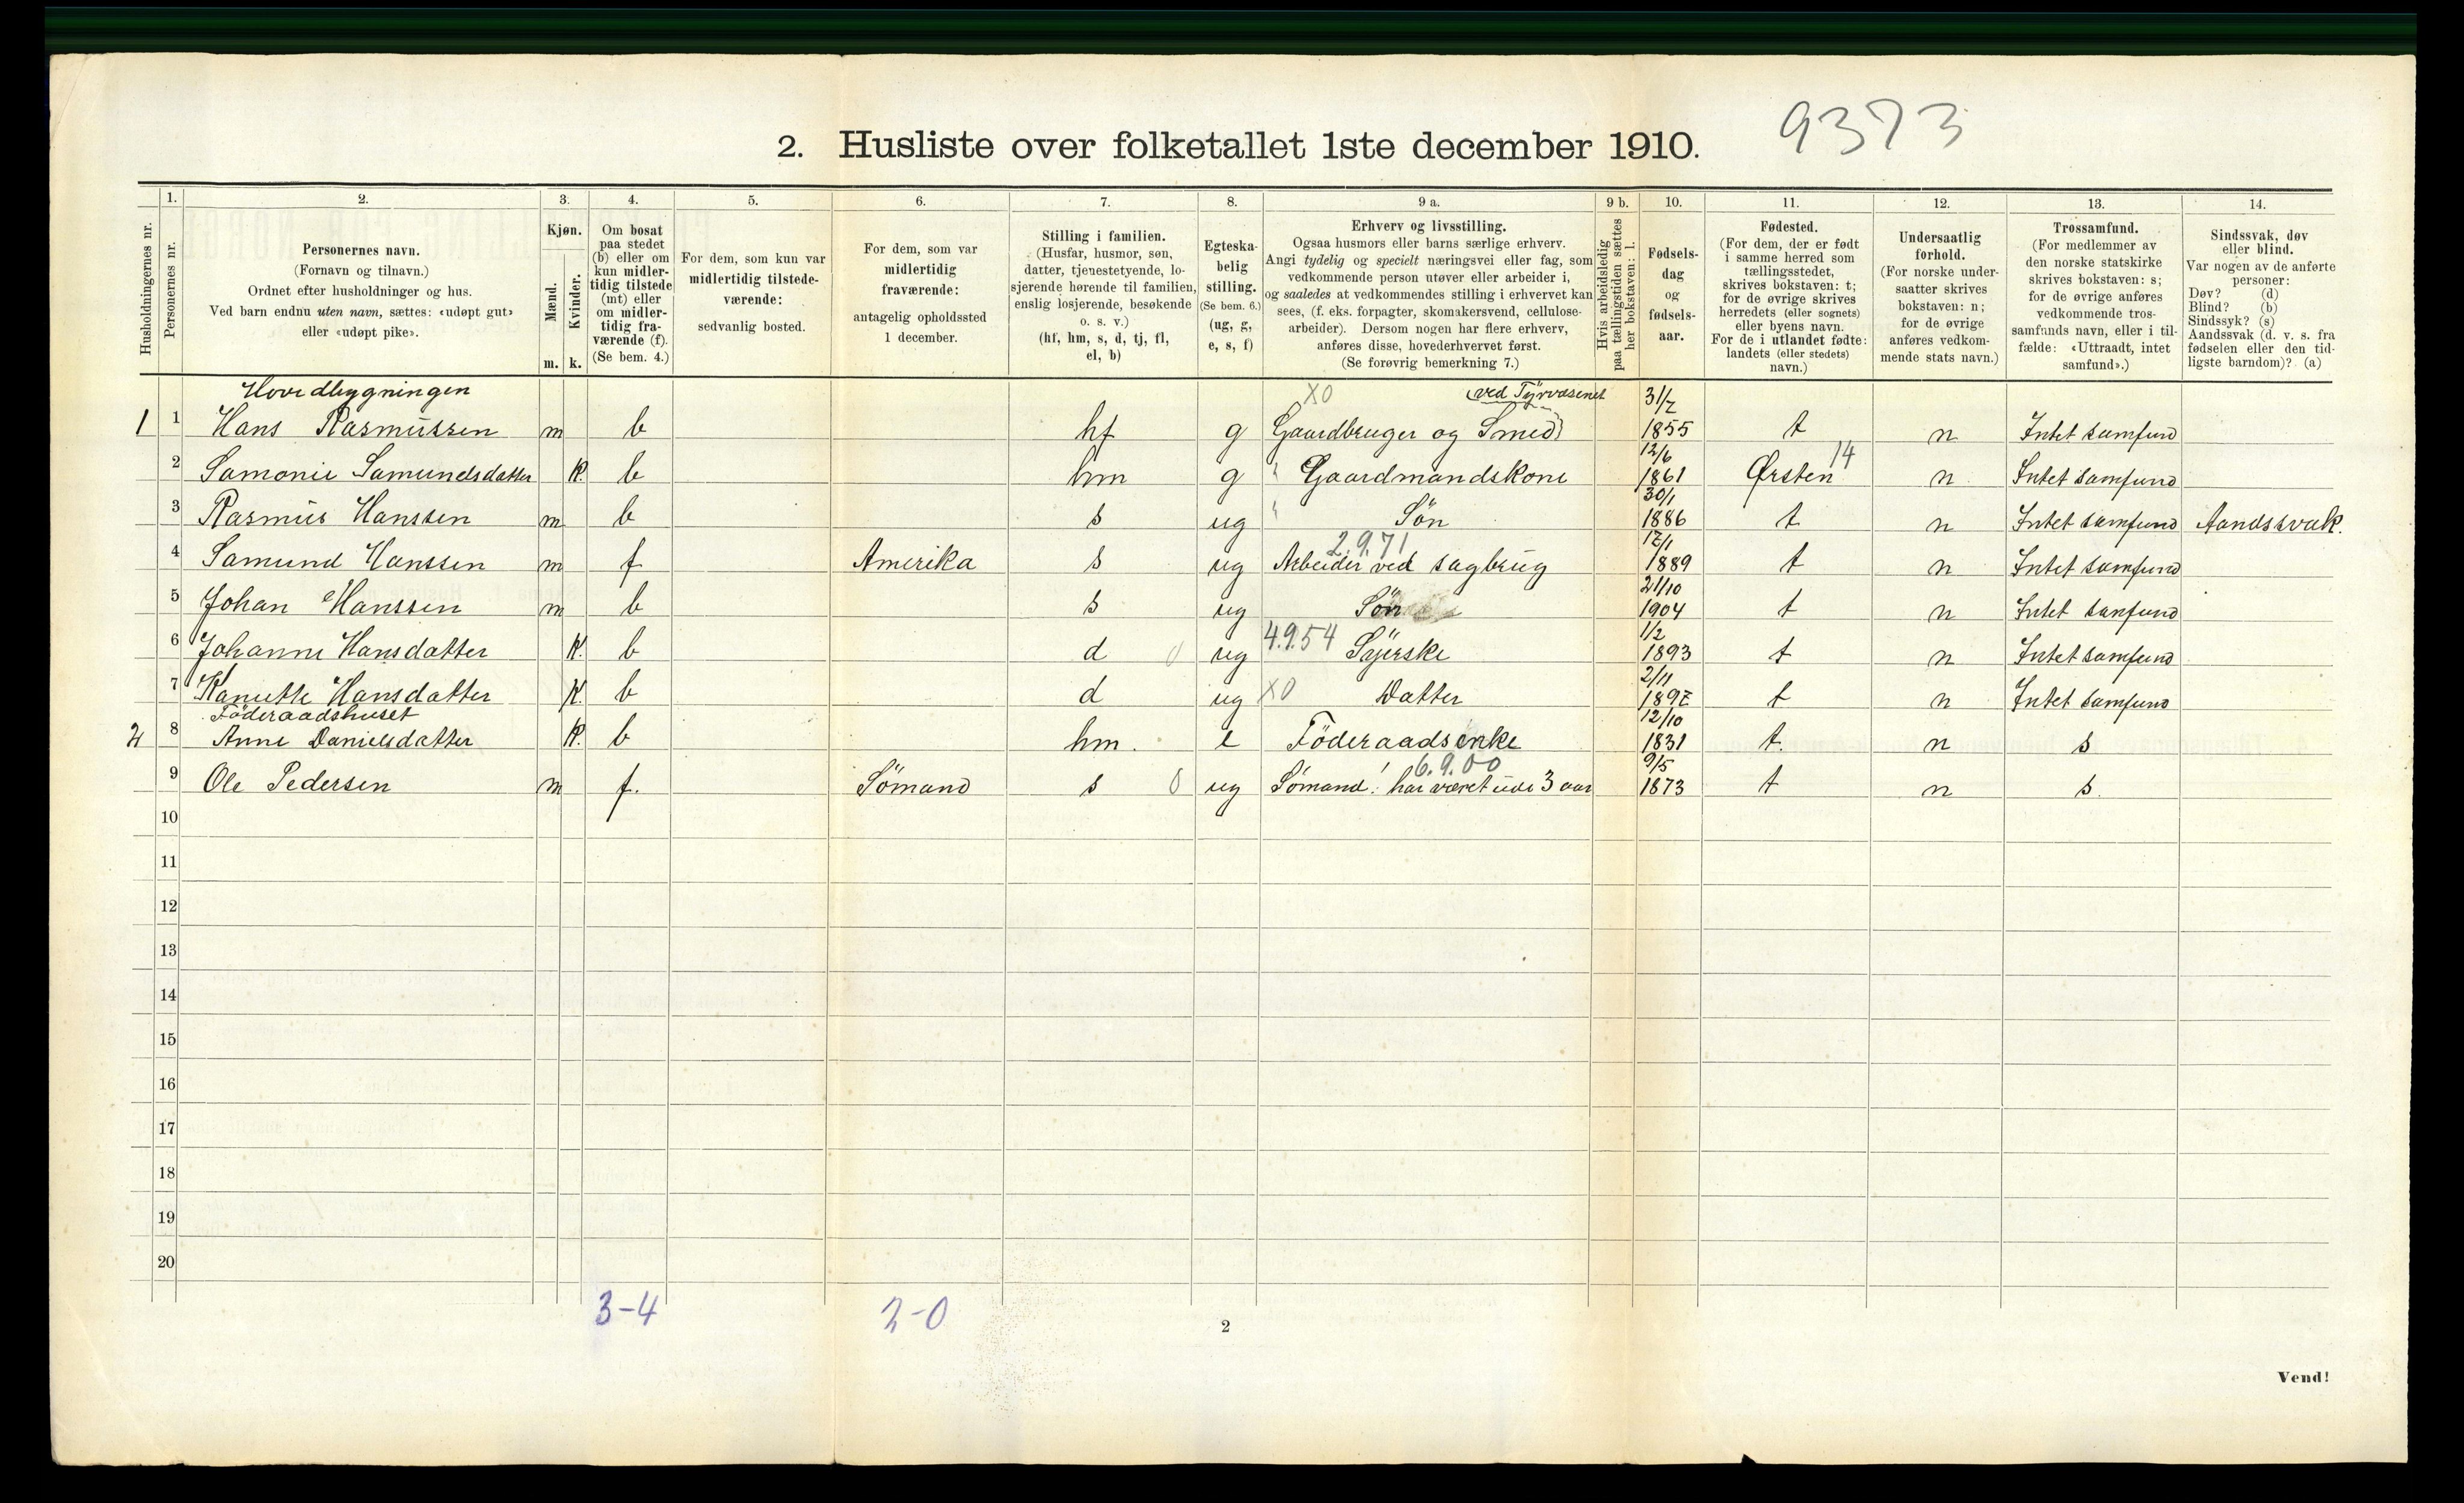 9373
2. Husliste over folketallet 1ste december 1910.
Husholdningernes nr.
1.
Personernes nr.
2.
Personernes navn.
(Fornavn og tilnavn.)
Ordnet efter husholdninger og hus.
Ved barn endnu uten navn, sættes: «udøpt gut»
eller «udøpt pike».
3.
Kjøn.
Mænd.
Kvinder.
m. k.
4.
Om bosat
paa stedet
(b) eller om
kun midler-
tidig tilstede
(mt) eller
om midler-
tidig fra-
værende (f).
(Se bem. 4.)
5.
For dem, som kun var
midlertidig tilstede-
værende:
sedvanlig bosted.
6.
For dem, som var
midlertidig
fraværende:
antagelig opholdssted
1 december.
7.
Stilling i familien.
(Husfar, husmor, søn,
datter, tjenestetyende, lo-
sjerende hørende til familien,
enslig losjerende, besøkende
o. s. v.)
(hf, hm, s, d, tj, fl,
el, b)
8.
Egteska-
belig
stilling.
(Se bem. 6.)
(ug, g,
e, s, f)
9 a.
Erhverv og livsstilling.
Ogsaa husmors eller barns særlige erhverv.
Angi tydelig og specielt næringsvei eller fag, som
vedkommende person utøver eller arbeider i,
og saaledes at vedkommendes stilling i erhvervet kan
sees, (f. eks. forpagter, skomakersvend, cellulose-
arbeider). Dersom nogen har flere erhverv,
anføres disse, hovederhvervet først.
(Se forøvrig bemerkning 7.)
9 b.
Hvis arbeidsledig
paa tællingstiden sættes
her bokstaven: l.
10.
Fødsels-
dag
og
fødsels-
aar.
11.
Fødested.
(For dem, der er født
i samme herred som
tællingsstedet,
skrives bokstaven: t;
for de øvrige skrives
herredets (eller sognets)
eller byens navn.
For de i utlandet fødte:
landets (eller stedets)
navn.)
12.
Undersaatlig
forhold.
(For norske under-
saatter skrives
bokstaven: n;
for de øvrige
anføres vedkom-
mende stats navn.)
13.
Trossamfund.
(For medlemmer av
den norske statskirke
skrives bokstaven: s;
for de øvrige anføres
vedkommende tros-
samfunds navn, eller i til-
fælde: «Uttraadt, intet
samfund».)
14.
Sindssvak, døv
eller blind.
Var nogen av de anførte
personer:
Døv? (d)
Blind? (b)
Sindssyk? (s)
Aandssvak (d. v. s. fra
fødselen eller den tid-
ligste barndom)? (a)
Hovedbygningen X0 (ved Tyrvæsenet 31/7
1 1 Hans Rasmussen m b hf g Gaardbruger og Smed) 1855 t n Intet samfund
12/6 14
2 Samonie Samundsdatter K. b hm g " Gaardmandskone 1861 Ørsten n Intet samfund
30/1
3 Rasmus Hanssen m b s ug " Søn 1886 t n Intet samfund Aandssvak.
2.9.71 17/1
4 Samund Hanssen m f Amerika s ug Arbeider ved sagbrug 1889 t n Intet samfund
21/10
5 Johan Hanssen m b s ug Søn 1904 t n Intet samfund
4.9.54 1/2
6 Johanne Hansdatter K. b d 0 ug Syerske 1893 t n Intet samfund
2/11
7 Kanutte Hansdatter K. b d ug X0 Datter 1897 t n Intet samfund
Föderaadshuset 12/10
2 8 Anne Danielsdatter K. b hm. e Föderaadsenke 1831 t. n s
6.9.00 9/5
9 Ole Pedersen m f. Sömand s 0 ug Sömand! har været ude 3 aar 1873 t n s
10
11
12
13
14
15
16
17
18
19
20
3-4 2-0
2
Vend!